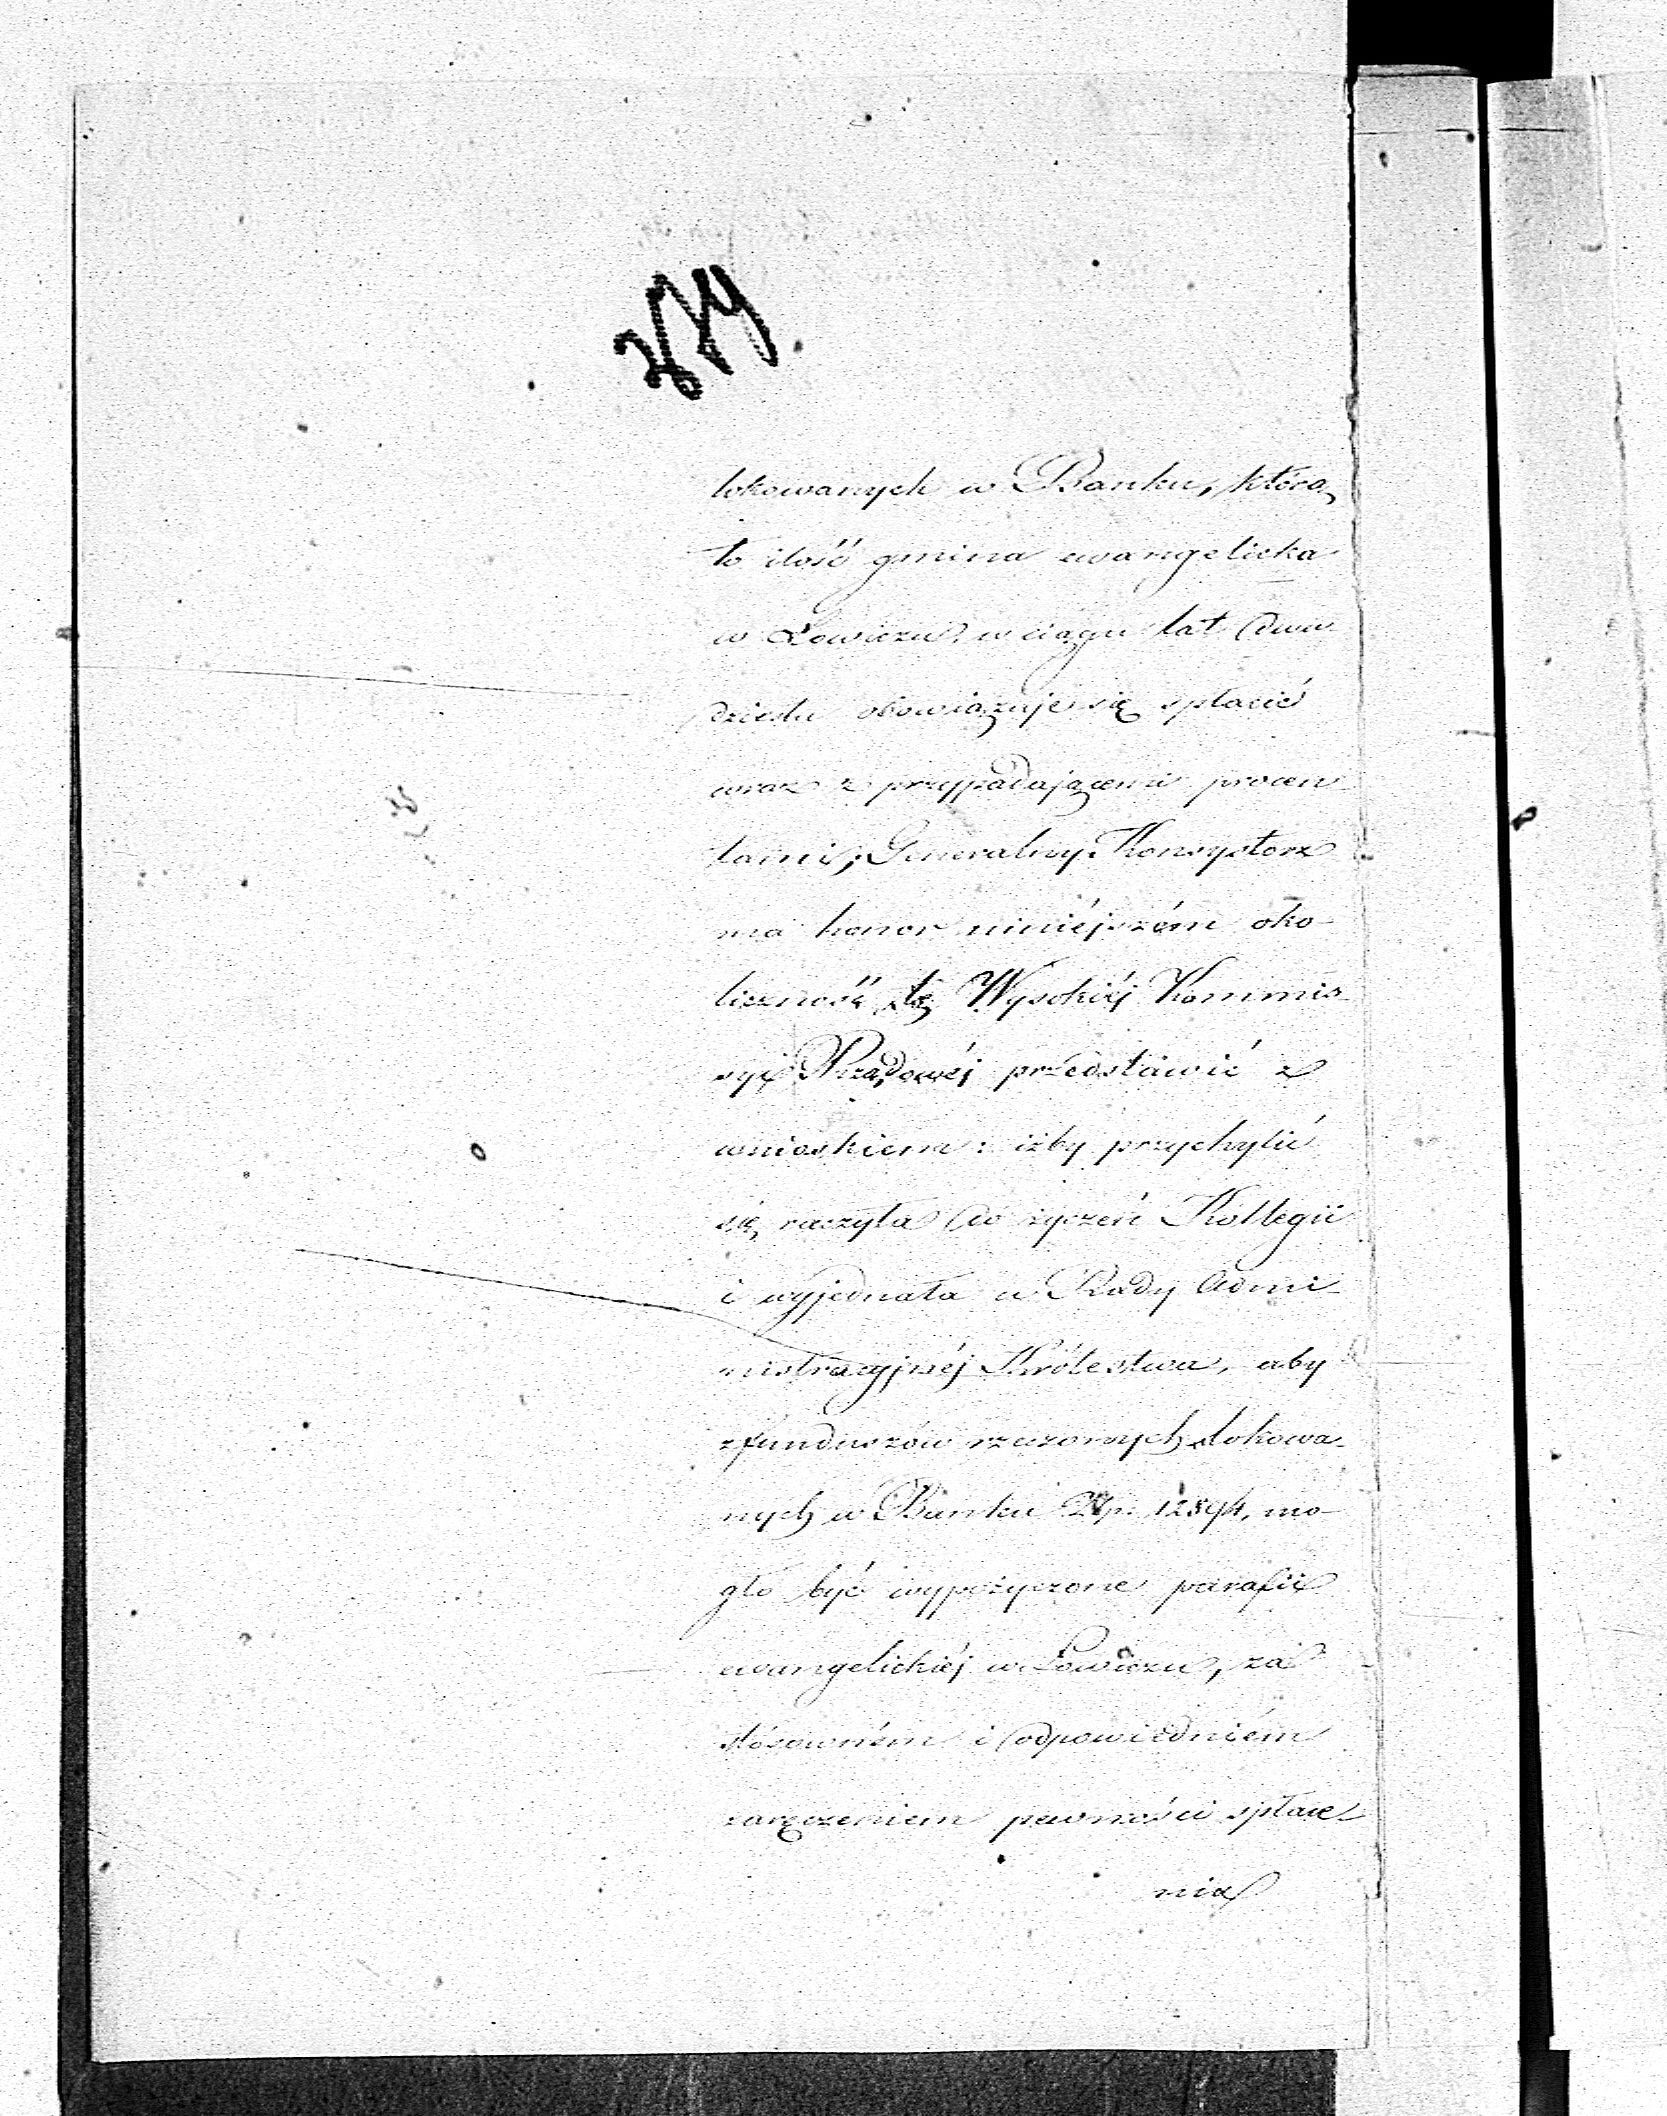 lokowanych w Banku, którą
to ilość gmina ewangelicka
w Łowiczu w ciągu lat dwu
dziestu obowiązuje się spłacić
wraz z przypadającemi procen
tami; Generalny Konsystorz
ma honor niniéjszém oko-
liczność tę Wysokiéj Kommis
syi Rządowéj przedstawić z
wnioskiem: iżby przychylić
się raczyła do życzeń Kollegii
i wyjednała u Rady Admi
nistracyjnéj Królestwa, aby
z funduszów rzeczonych lokowa-
nych w Banku Złp. 12894, mo-
gło być wypożyczone parafii
ewangelickiéj w Łowiczu, za
stósowném i odpowiedniém
zaręczeniem pewności spłace
nia